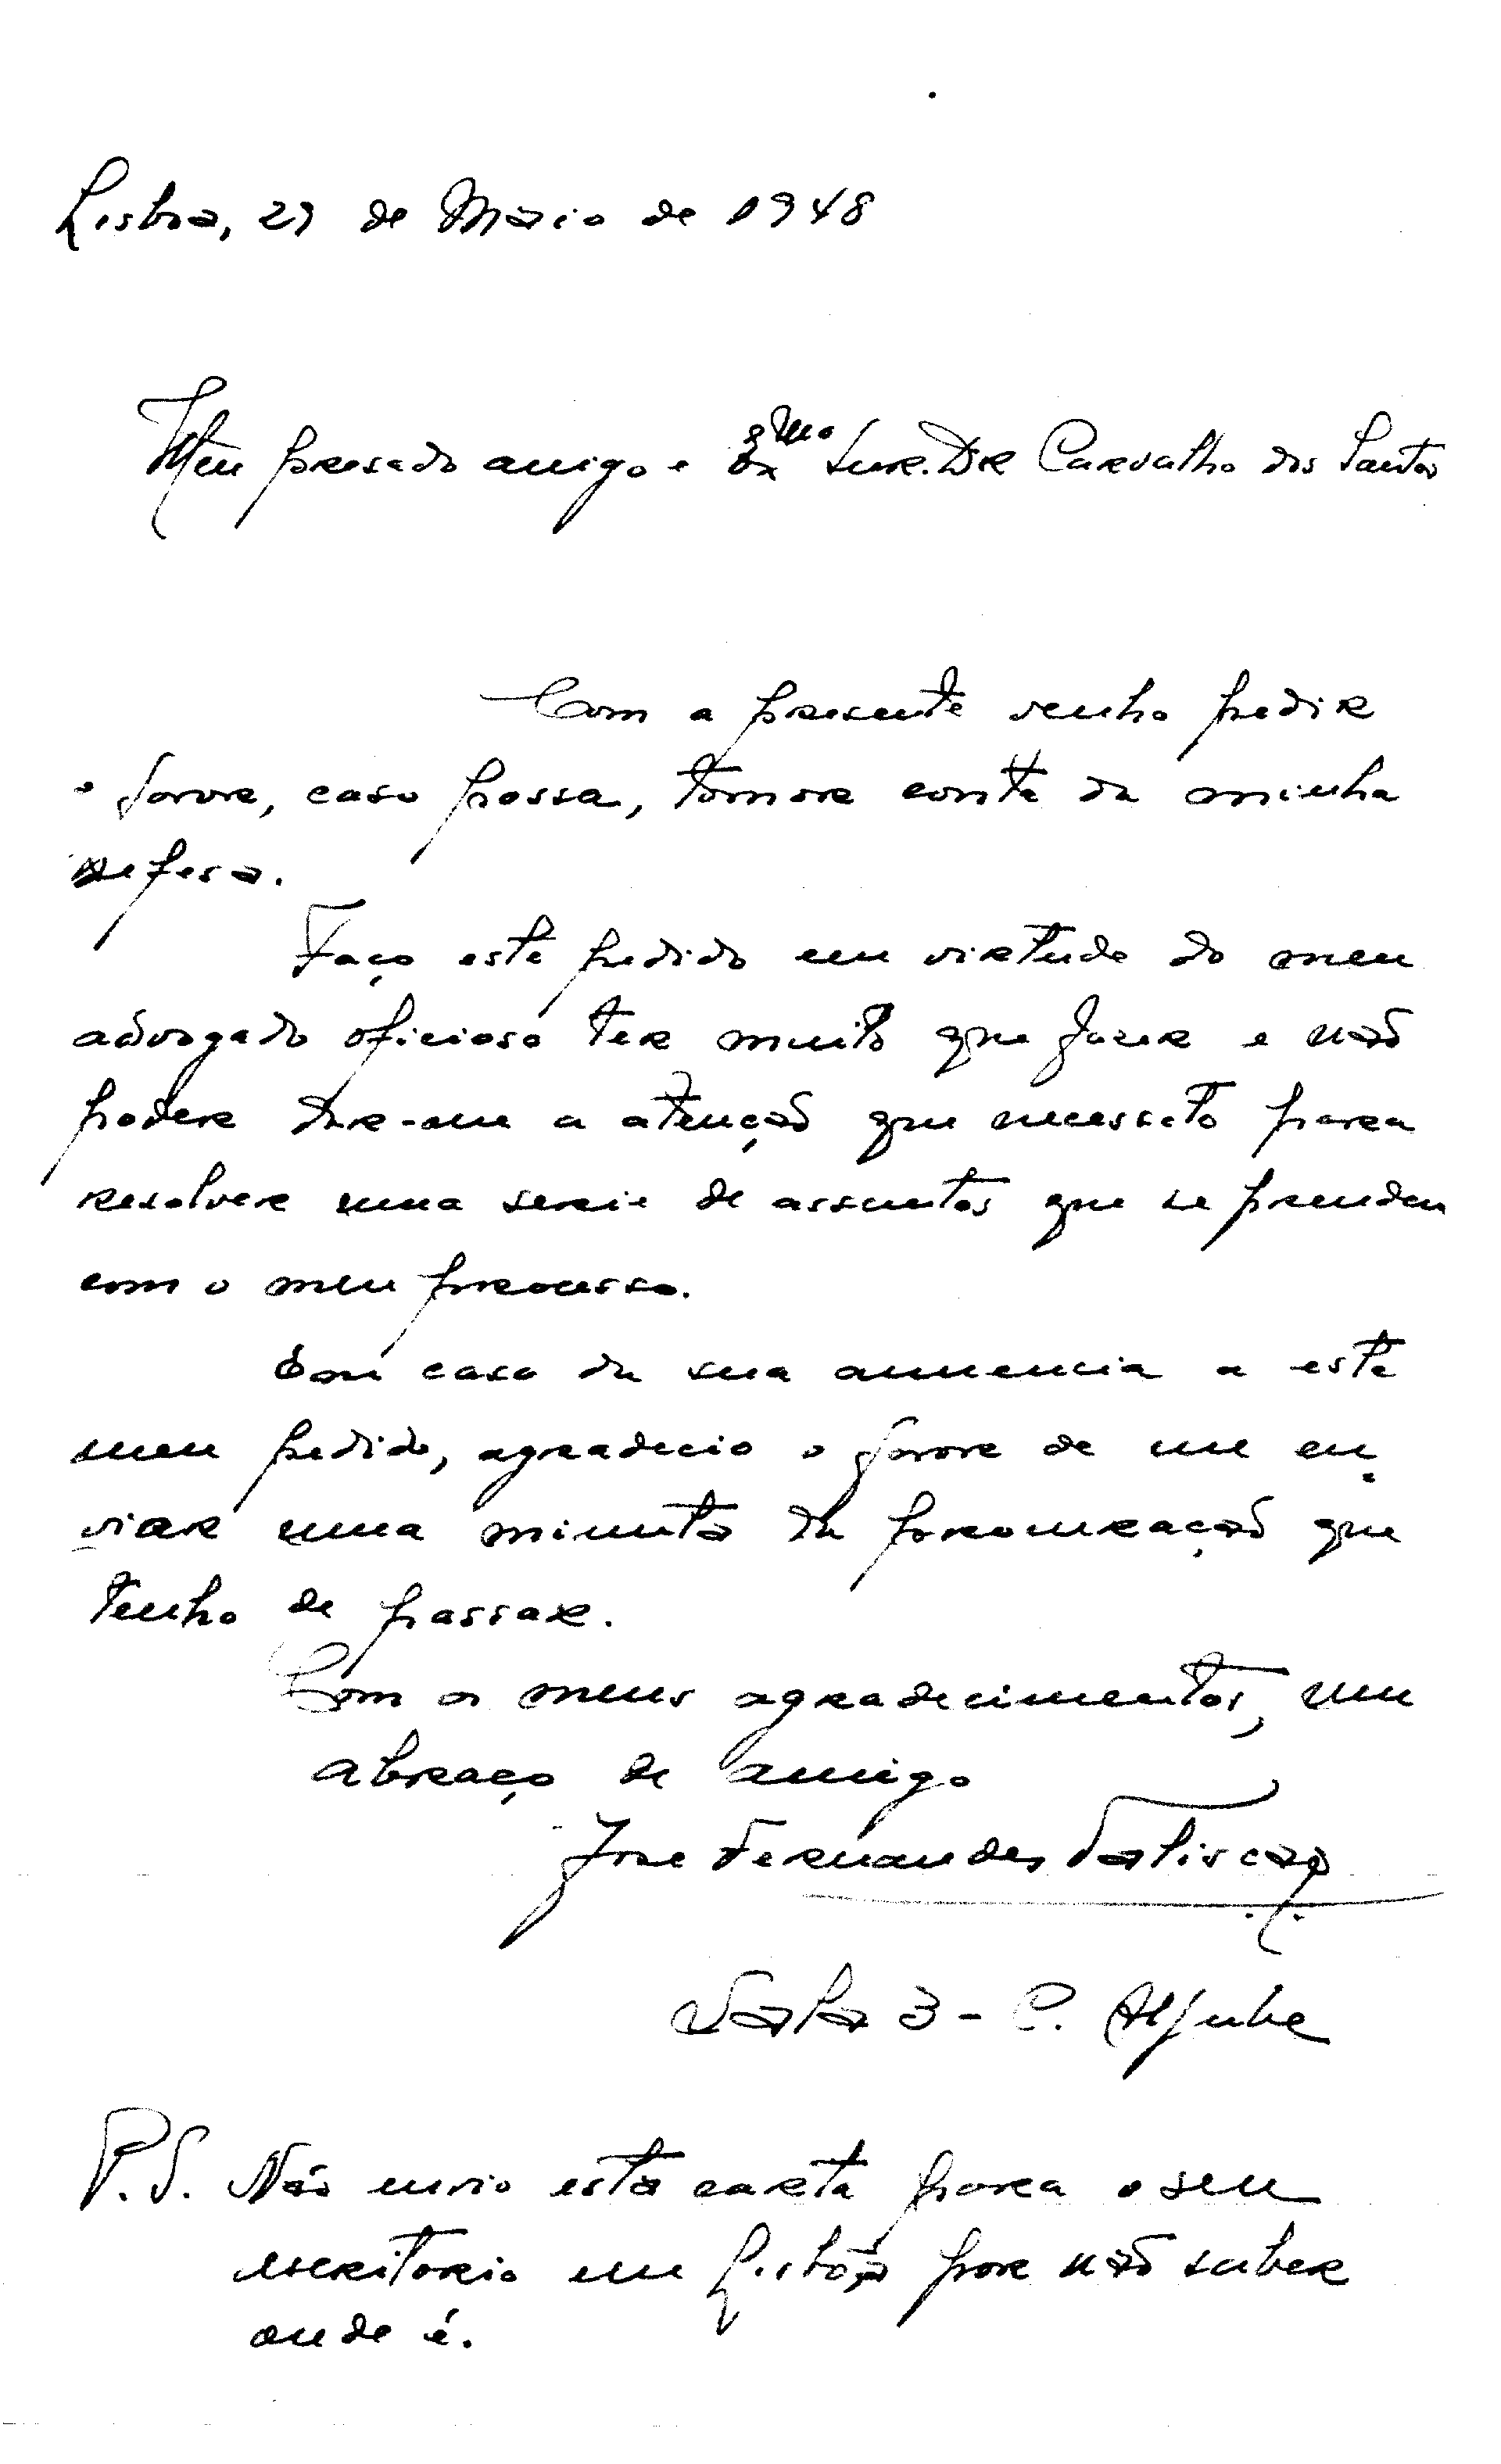 Lisboa, 29 de Maio de 1948
Meu presado amigo e Exmo Snr. Dr Carvalho dos Santos
Com a presente venho pedir
o favor, caso possa, tomar conta da minha
defesa.
Faço este pedido em virtude do meu
advogado oficioso ter muito que fazer e não
poder dar-me a atenção que necessito para
resolver uma serie de assuntos que se prendem
com o meu processo.
Em caso da sua anuencia a este
meu pedido, agradecio o favor de me en-
viar uma minuta da procuração que
tenho de passar.
Com os meus agradecimentos, um
abraço de amigo
Jose Fernandes
Sala 3 - C. Aljube
P.S. Não envio esta carta para o seu
escritorio em Lisboa por não saber
onde é.